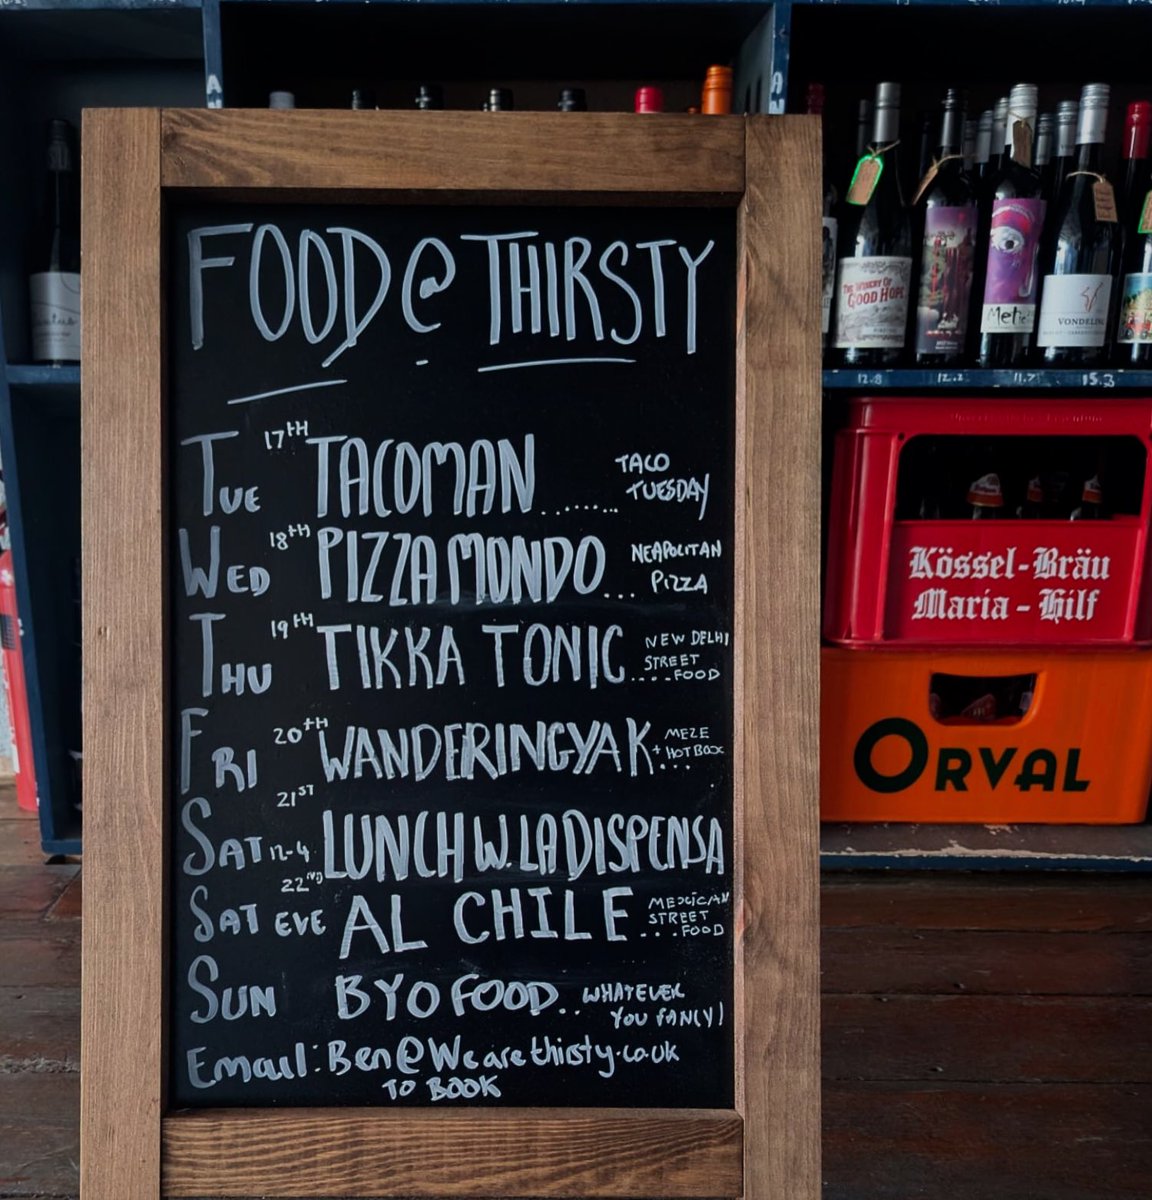 FOOD @ THIRSTY
TUE 17TH TACOMAN ........ TACO TUESDAY
WED 18TH PIZZA MONDO ... NEAPOLITAN PIZZA
THU 19TH TIKKA TONIC .... NEW DELHI STREET FOOD
FRI 20TH WANDERINGYAK ... MEZE + HOTBOX
SAT 21ST 12-4 LUNCH W. LA DISPENSA
SAT EVE 22ND AL CHILE ... MEXICAN STREET FOOD
SUN BYO FOOD .. WHATEVER YOU FANCY!
Email: Ben@Wearethirsty.co.uk
TO BOOK
THE WINERY OF
GOOD HOPE
VONDELING
12.8
12.2
11.7
15.3
Kössel-Bräu
Maria-Hilf
ORVAL